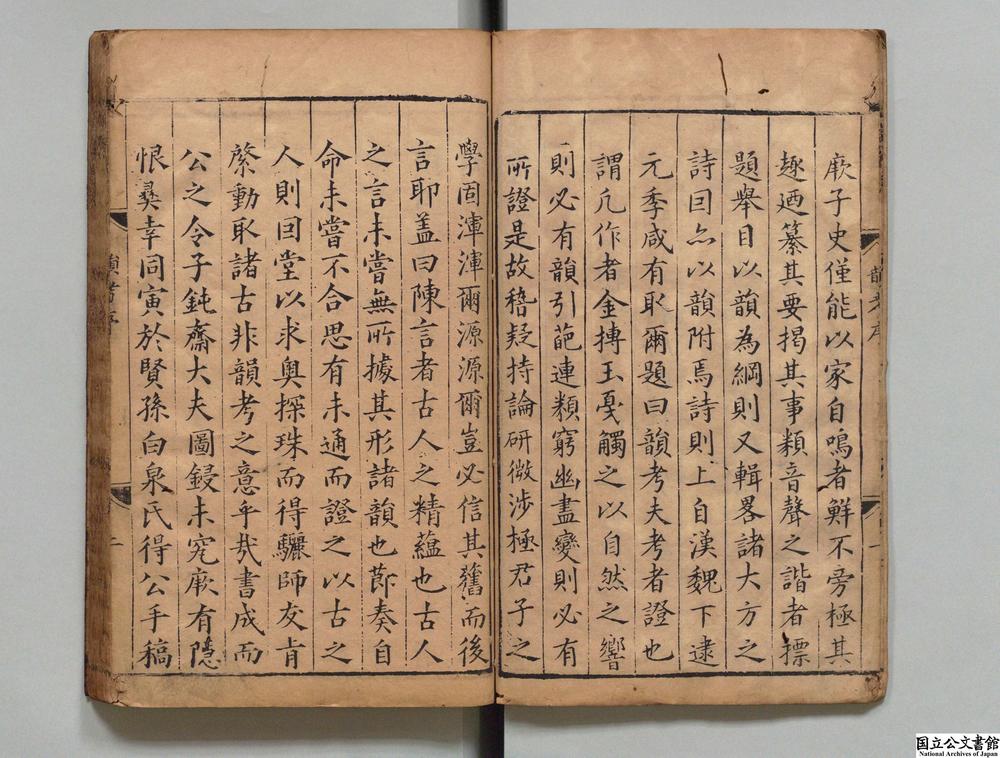 厥子史僅能以家自鳴者鮮不旁極其
趣廼纂其要揭其事類音聲之諧者摽
題舉目以韻為綱則又輯畧諸大方之
詩回㕥以韻附焉詩則上自漢魏下逮
元季咸有取爾題曰韻考夫考者證也
謂凡作者金摶玉戛觸之以自然之響
則必有韻引葩連類窮幽盡變則必有
所證是故稽疑持論研微涉極君子之
學固渾渾爾源源爾豈必信其舊而後
言耶盖曰陳言者古人之精蘊也古人
之言未嘗無所據其形諸韻也節奏自
命未嘗不合思有未通而證之以古之
人則回堂以求奥探珠而得驪師友肯
綮動取諸古非韻考之意乎哉書成而
公之令子鈍齋大夫圖鋟未究厥有隱
恨彛幸同寅於賢孫白泉氏得公手稿
韻考序
一
韻考序
二
国立公文書館
National Archives of Japan